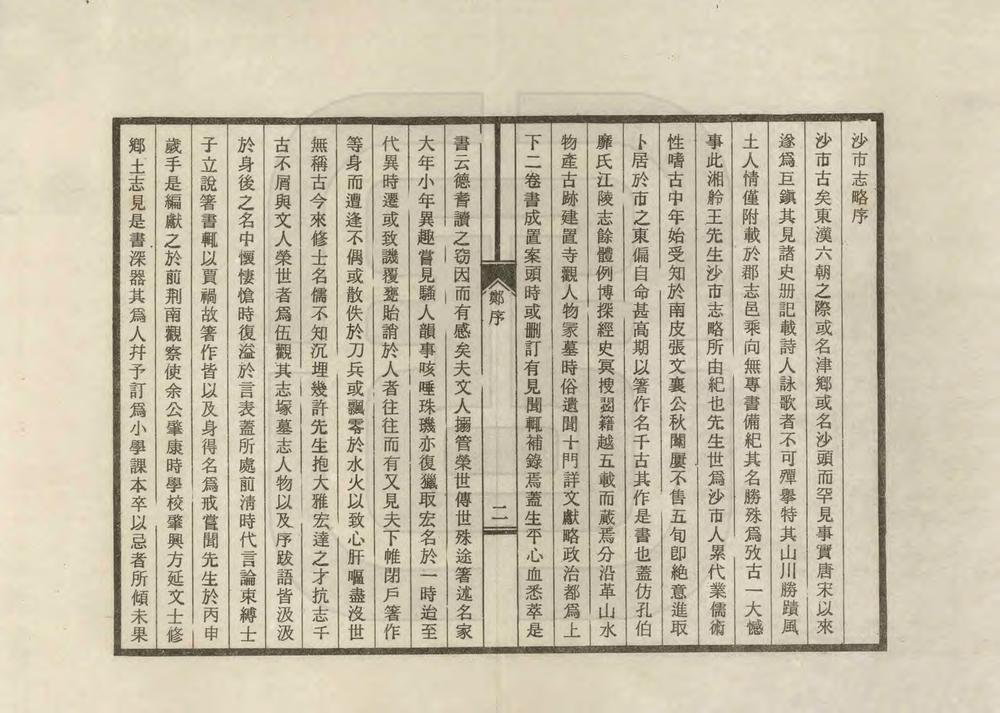 沙市志略序
沙市古矣東漢六朝之際或名津鄉或名沙頭而罕見事實唐宋以來
遂爲巨鎭其見諸史册記載詩人詠歌者不可殫擧特其山川勝蹟風
土人情僅附載於郡志邑乘向無專書備紀其名勝殊爲攷古一大憾
事此湘舲王先生沙市志略所由紀也先生世爲沙市人累代業儒術
性嗜古中年始受知於南皮張文襄公秋闈屢不售五旬卽絶意進取
卜居於市之東偏自命甚高期以箸作名千古其作是書也蓋仿孔伯
靡氏江陵志餘體例博採經史冥搜羣籍越五載而蕆焉分沿革山水
物產古跡建置寺觀人物冡墓時俗遺聞十門詳文獻略政治都爲上
下二卷書成置案頭時或删訂有見聞輒補錄焉蓋生平心血悉萃是
鄭序
二
書云德耆讀之窃因而有感矣夫文人搦管榮世傳世殊途箸述名家
大年小年異趣嘗見騷人韻事咳唾珠璣亦復獵取宏名於一時迨至
代異時遷或致譏覆甕貽誚於人者往往而有又見夫下帷閉戶箸作
等身而遭逢不偶或散佚於刀兵或飄零於水火以致心肝嘔盡沒世
無稱古今來修士名儒不知沉埋幾許先生抱大雅宏達之才抗志千
古不屑與文人榮世者爲伍觀其志塚墓志人物以及序跋語皆汲汲
於身後之名中懷悽愴時復溢於言表蓋所處前清時代言論束縛士
子立說箸書輒以賈禍故箸作皆以及身得名爲戒嘗聞先生於丙申
歲手是編獻之於前荆南觀察使余公肇康時學校肇興方延文士修
鄉土志見是書深器其爲人幷予訂爲小學課本卒以忌者所傾未果